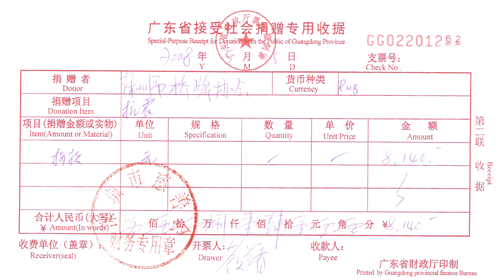 广东省接受社会捐赠专用收据
Special-Purpose Receipt for Donation with the Public of Guangdong Province
GG022012
2008 年 月 日
Y M D
支票号:
Check No.
捐赠者
Donor
桥牌协会
货币种类
Currency
RMB
捐赠项目
Donation Item
抗震
项目(捐赠金额或实物)
Item(Amount or Material)
单位
Unit
规格
Specification
数量
Quantity
单价
Unit Price
金额
Amount
捐款 元 8,140.-
合计人民币(大写)
¥ Amount(In words)
佰 拾 万 仟 佰 拾 元 角 分 ¥8,140.-
财务专用章
收费单位(盖章):
Receiver(seal)
开票人:
Drawer
收款人:
Payee
第二联 收据
Receipt
广东省财政厅印制
Printed by Guangdong provincial finance Bureau